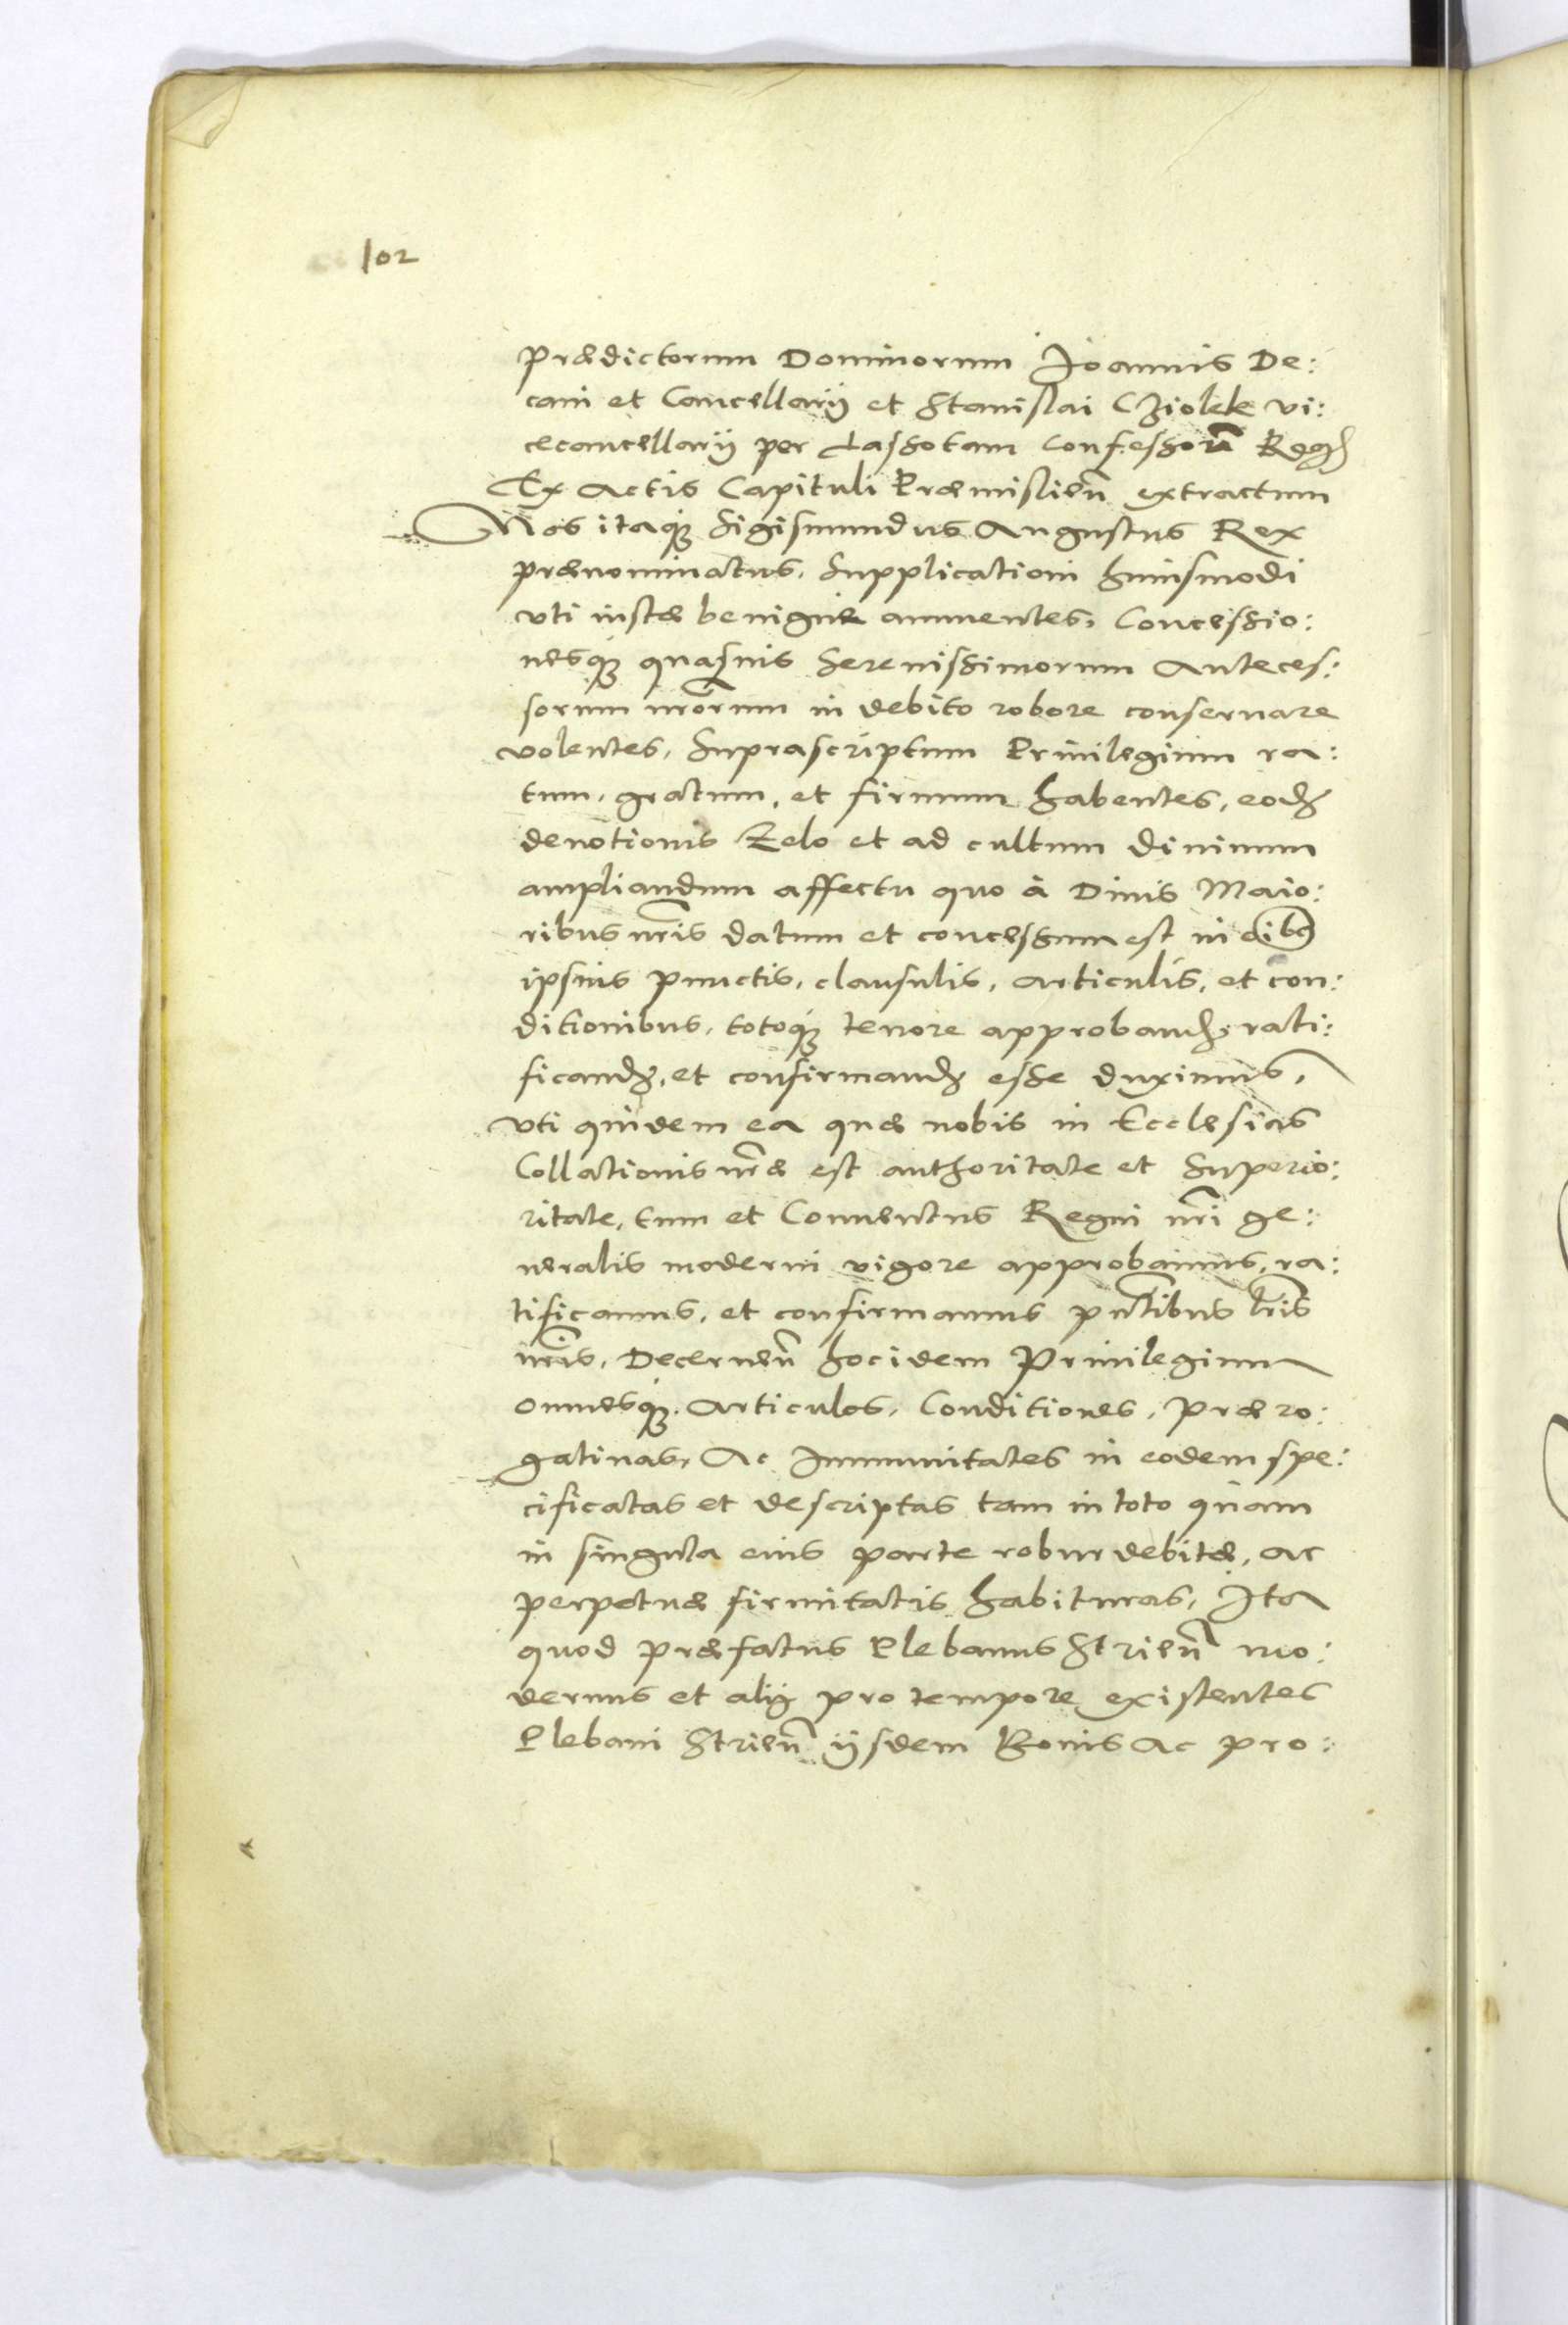 102
prædictorum Dominorum Ioannis De:
cani et Cancellarij et Stanislai Cziolek vi:
cecancellarij per Lassotam Confessorē Reg
Ex Actis Capituli Præmislien̄ extractum
Nos itaq; Sigismundus Augustus Rex
prænominatus, Supplicationi huiusmodi
vti iustæ benignè annuentes, Concessio:
nesq; quasuis Serenissimorum Anteces:
sorum nr̄orum in debito robore conseruare
volentes, Suprascriptum Priuilegium ra:
tum, gratum, et firmum habentes, eodꝫ
deuotionis Zelo et ad cultum diuinum
ampliandum affectu quo à Diuis Maio:
ribus nr̄is datum et concessum est in oībꝫ
ipsius punctis, clausulis, articulis, et con:
ditionibus, totoq; tenore approbandꝫ, rati:
ficandꝫ, et confirmandꝫ esse duximus,
vti quidem ea quæ nobis in Ecclesias
Collationis nr̄æ est authoritate et Superio:
ritate, tum et Conuentus Regni nr̄i ge:
neralis moderni vigore approbamus, ra:
tificamus, et confirmamus pn̄tibus lr̄is
nr̄is, Decernen̄ hocidem Priuilegium
omnesq; Articulos, Conditiones, Præro:
gatiuas, Ac Immunitates in eodem spe:
cificatas et descriptas tam in toto quam
in singula eius parte robur debitæ, ac
perpetuæ firmitatis habituras, Ita
quod præfatus Plebanus Strien̄ mo:
dernus et alij pro tempore existentes
Plebani Strien̄ ijsdem Bonis Ac pro: